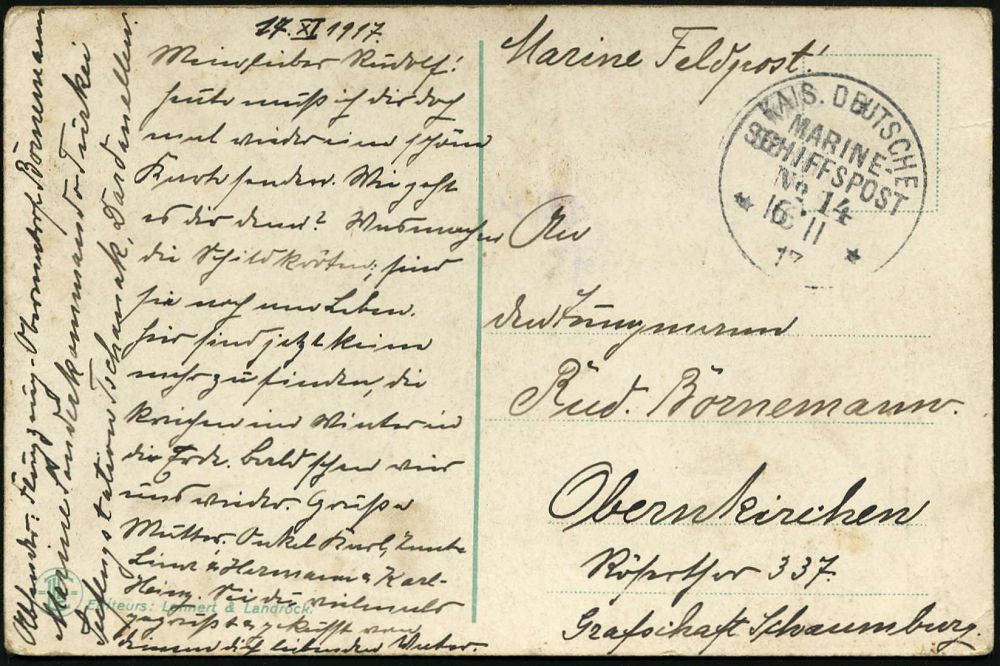 14. XI 1917.
Mein lieber Rudolf!
Heute muß ich dir doch
mal wieder eine schöne
Karte senden. Wie geht
es dir denn? Was machen
die Schildkröten; sind
sie noch am Leben.
Hier sind jetzt keine
mehr zu finden, die
kriechen im Winter in
die Erde. Bald sehen wir
uns wieder. Grüße
Mutter, Onkel Karl, Tante
Line & Hermann & Karl-
Heinz. Sei du vielmals
gegrüßt & geküsst von
deinem dich liebenden Vater.
Absender: Obermatrose Börnemann
Marine Sonderkommando Türkei
Peilungstation Tschanak, Dardanellen.
Editeurs: Lehnert & Landrock.
Marine Feldpost!
KAIS. DEUTSCHE
MARINE-
SCHIFFSPOST
No 14
16 11
17
An
den Jungmann
Rud. Börnemann.
Obernkirchen
Rösertor 337.
Grafschaft Schaumburg.